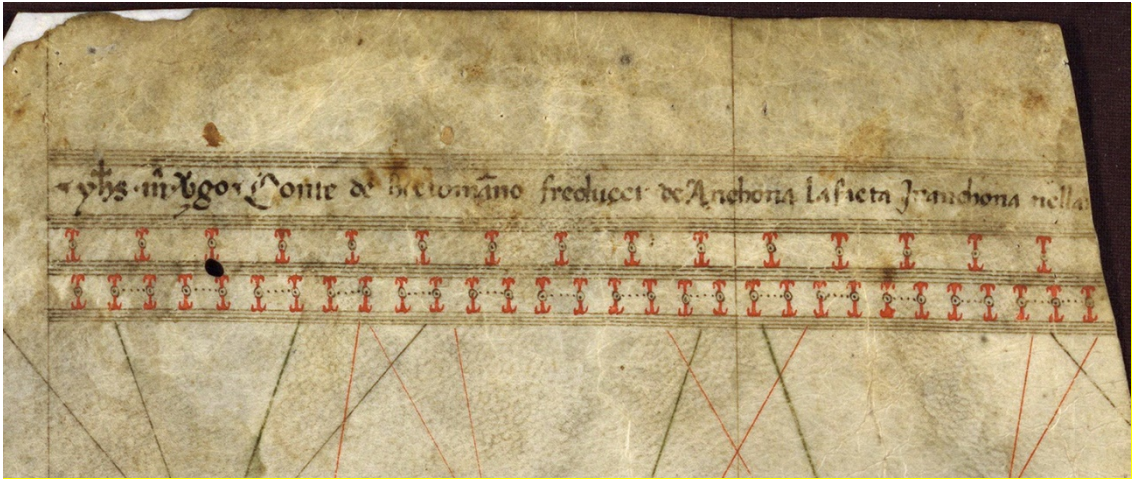 yhs m̄ Vgo Conte de hectomāno freducci de Anchona lafacta Jnanchona nella